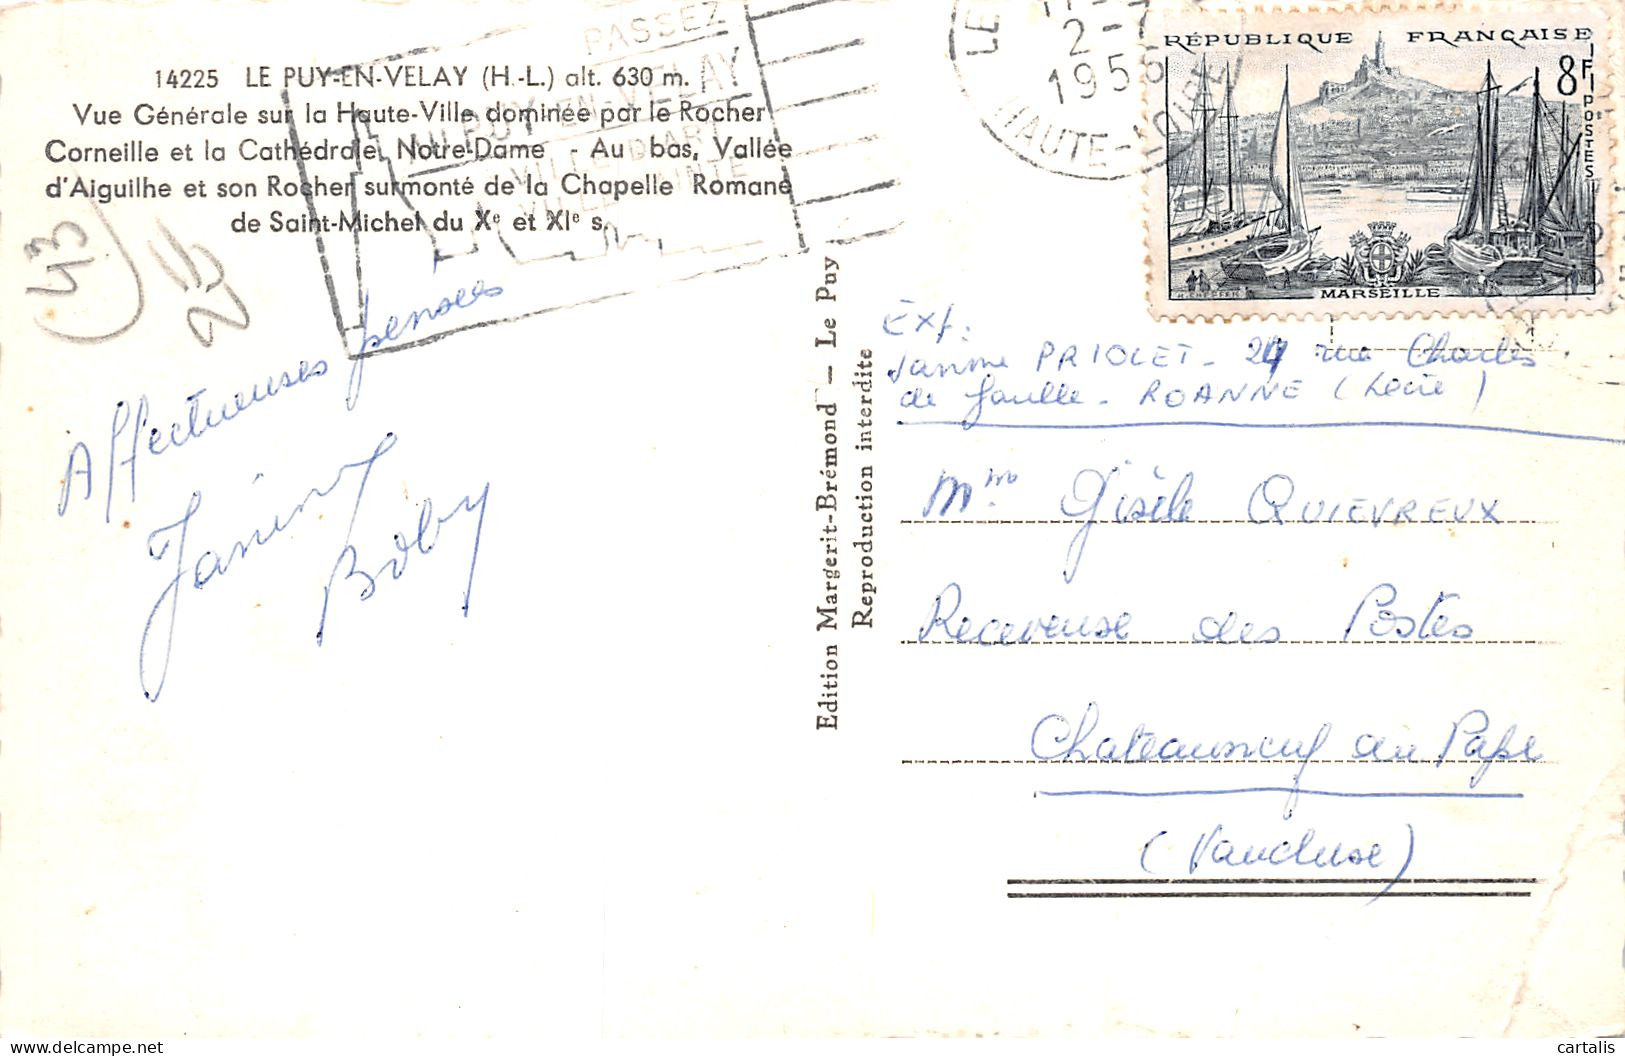 14225 LE PUY-EN-VELAY (H.-L.) alt. 630 m.
Vue Générale sur la Haute-Ville dominée par le Rocher
Corneille et la Cathédrale Notre-Dame - Au bas, Vallée
d'Aiguilhe et son Rocher surmonté de la Chapelle Romane
de Saint-Michel du Xe et XIe s.
PASSEZ
AU PUY-EN-VELAY
VILLE D'ART
VILLE SAINTE
43
Affectueuses pensées
Janine
Boby
Edition Margerit-Brémond — Le Puy
Reproduction interdite
LE
2-7
1956
HAUTE-LOIRE
RÉPUBLIQUE FRANÇAISE
8F
POSTES
MARSEILLE
Exp:
Janine PRIOLET - 24 rue Charles
de Gaulle - ROANNE (Loire)
Mme Gisèle QUIEVREUX
Receveuse des Postes
Chateauneuf du Pape
(Vaucluse)
cartalis